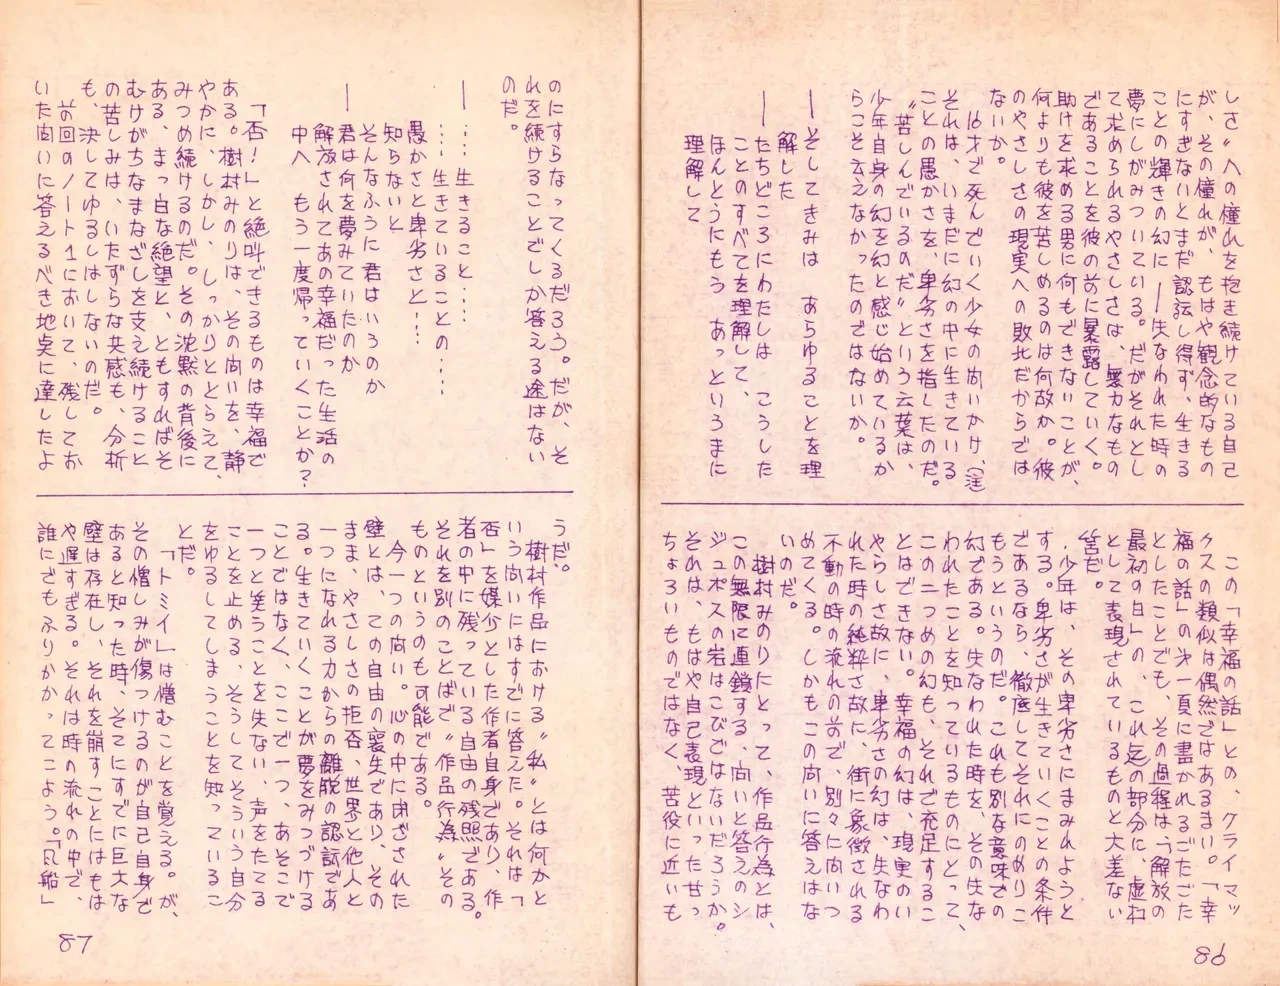 しさ〟への憧れを抱き続けている自己
が、その憧れが、もはや観念的なもの
にすぎないとまだ認訟し得ず、生きる
ことの輝きの幻に ―失なわれた時の
夢にしがみついている。だがそれとし
て求められるやさしさは、無力なもの
であることを彼の前に暴露していく。
助けを求める男に何もできないことが、
何よりも彼を苦しめるのは何故か。彼
のやさしさの現実への敗北だからでは
ないか。
16才で死んでいく少女の問いかけ、(注)
それは、いまだに幻の中に生きている
ことの愚かさを、卑劣さを指したのだ。
〝苦しんでいるのだ〟という云葉は、
少年自身の幻を幻と感じ始めているか
らこそ云えなかったのではないか。
―そしてきみは あらゆることを理
解した
―たちどころにわたしは こうした
ことのすべてを理解して、
ほんとうにもう あっというまに
理解して
この「幸福の話」との、クライマッ
クスの類似は偶然ではあるまい。「幸
福の話」の㐧一頁に畫かれるごたごた
としたことでも、その過程は「解放の
最初の日」の、これ迄の部分に、虚ね
として表現されているものと大差ない
筈だ。
少年は、その卑劣さにまみれようと
する。卑劣さが生きていくことの条件
であるなら、徹底してそれにのめりこ
もうというのだ。これも別な意味での
幻である。失なわれた時を、その失な
われたことを知っているものにとって、
この二つめの幻も、それで充足するこ
とはできない。幸福の幻は、現実のい
やらしさ故に、卑劣さの幻は、失なわ
れた時の純粋さ故に、街に象徴される
不動の時の流れの前で、別々に問いつ
めてくる。しかもこの問いに答えはな
いのだ。
樹村みのりにとって、作品行為とは、
この無限に連鎖する、問いと答えのシ
ジュポスの岩はこびではないだろうか。
それは、もはや自己表現といった甘っ
ちょろいものではなく、苦役に近いも
86
のにすらなってくるだろう。だが、そ
れを続けることでしか答える途はない
のだ。
―……生きること……
……生きていることの……
愚かさと卑劣さと……
知らないと
そんなふうに君はいうのか
―君は何を夢みていたのか
解放されてあの幸福だった生活の
中へ もう一度帰っていくことか?
「否!」と絶叫できるものは幸福で
ある。樹村みのりは、その問いを、静
やかに、しかし、しっかりととらえて、
みつめ続けるのだ。その沈黙の背後に
ある、まっ白な絶望と、ともすればそ
むけがちなまなざしを支え続けること
の苦しみは、いたずらな共感も、分析
も、決してゆるしはしないのだ。
前回のノート1において、残してお
いた問いに答えるべき地点に達したよ
うだ。
樹村作品における〝私〟とは何かと
いう問いにはすでに答えた。それは「
否」を媒介とした作者自身であり、作
者の中に残っている自由の残照である。
それを別のことばで〝作品行為〟その
ものというのも可能である。
今一つの問い。心の中に閉ざされた
壁とは、ての自由の寝生であり、その
まま、やさしさの拒否、世界と他人と
一つになれる力からの離脱の認訟であ
る。生きていくことが夢をみつづける
ことではなく、ここで一つ、あそこで
一つと笑うことを失ない、声をたてる
ことを止める、そうしてそういう自分
をゆるしてしまうことを知っているこ
とだ。
「トミイ」は憎むことを覚える。が、
その憎しみが傷つけるのが自己自身で
あると知った時、そこにすでに巨大な
壁は存在し、それを崩すことにはもは
や遅すぎる。それは時の流れの中で、
誰にでもふりかかってこよう。「風船」
87